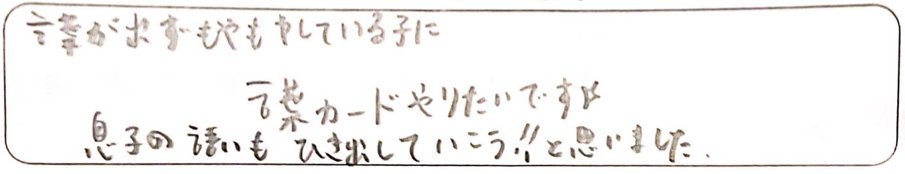 言葉が出ずもやもやしている子に
言葉カードやりたいですね
息子の思いもひき出していこう!!と思いました.